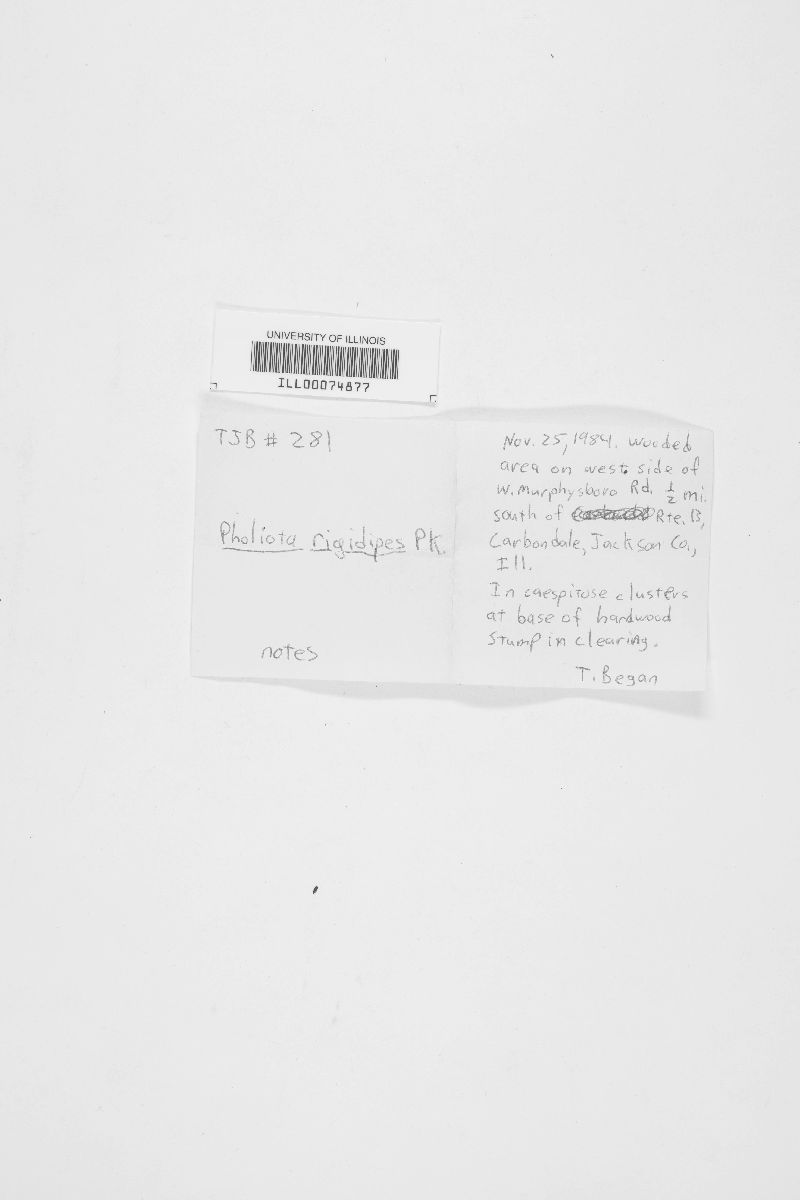 UNIVERSITY OF ILLINOIS
ILL00074877
TJB # 281
Pholiota rigidipes Pk.
notes
Nov. 25, 1984. Wooded
area on west side of
W. Murphysboro Rd. 1/2 mi.
south of Rte. 13,
Carbondale, Jackson Co.,
Ill.
In caespitose clusters
at base of hardwood
stump in clearing.
T. Began